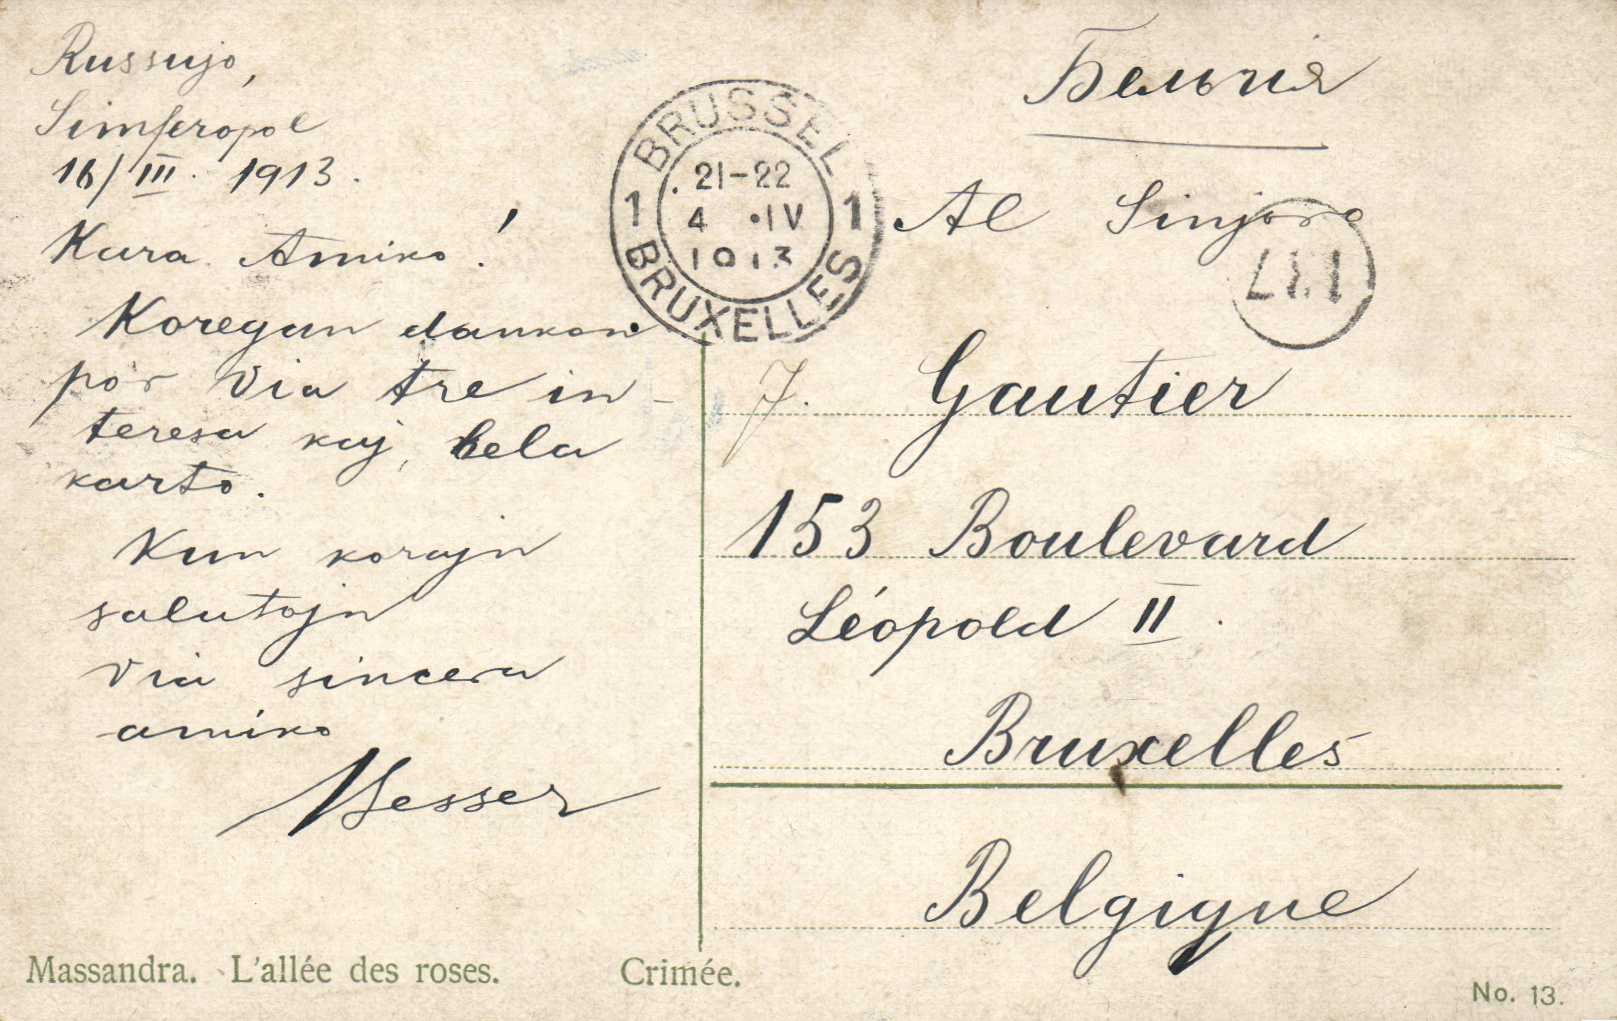 Russujo,
Simferopol
16/III. 1913.
Kara Amiko!
Koregan dankon
por Via tre in-
teresa kaj bela
karto.
Kun korajn
salutojn
Via sincera
amiko
BRUSSEL
21-22
1 4 •IV 1
1913
BRUXELLES
Бельгія
Al Sinjoro
J. Gautier
153 Boulevard
Léopold II.
Bruxelles
Belgique
Massandra. L'allée des roses. Crimée.
No. 13.